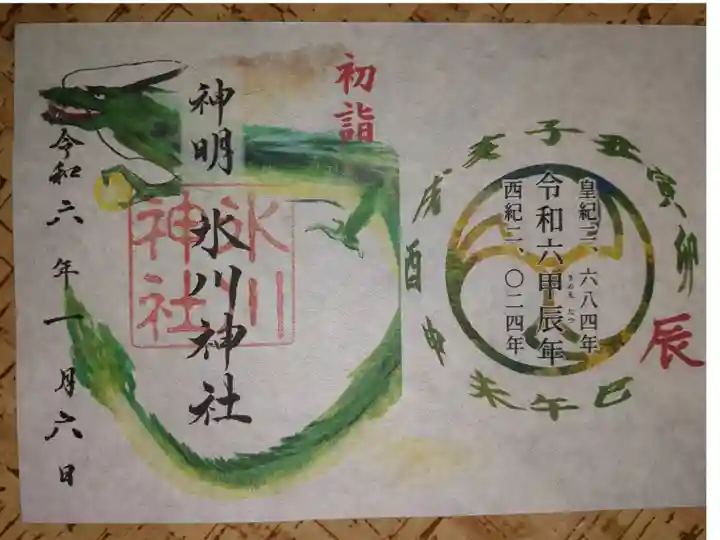 初詣
神明 氷川神社
氷川
神社
令和六年一月六日
皇紀二、六八四年
令和六甲辰年
きのえ たつ
西紀二、〇二四年
子
丑
寅
卯
辰
巳
午
未
申
酉
戌
亥